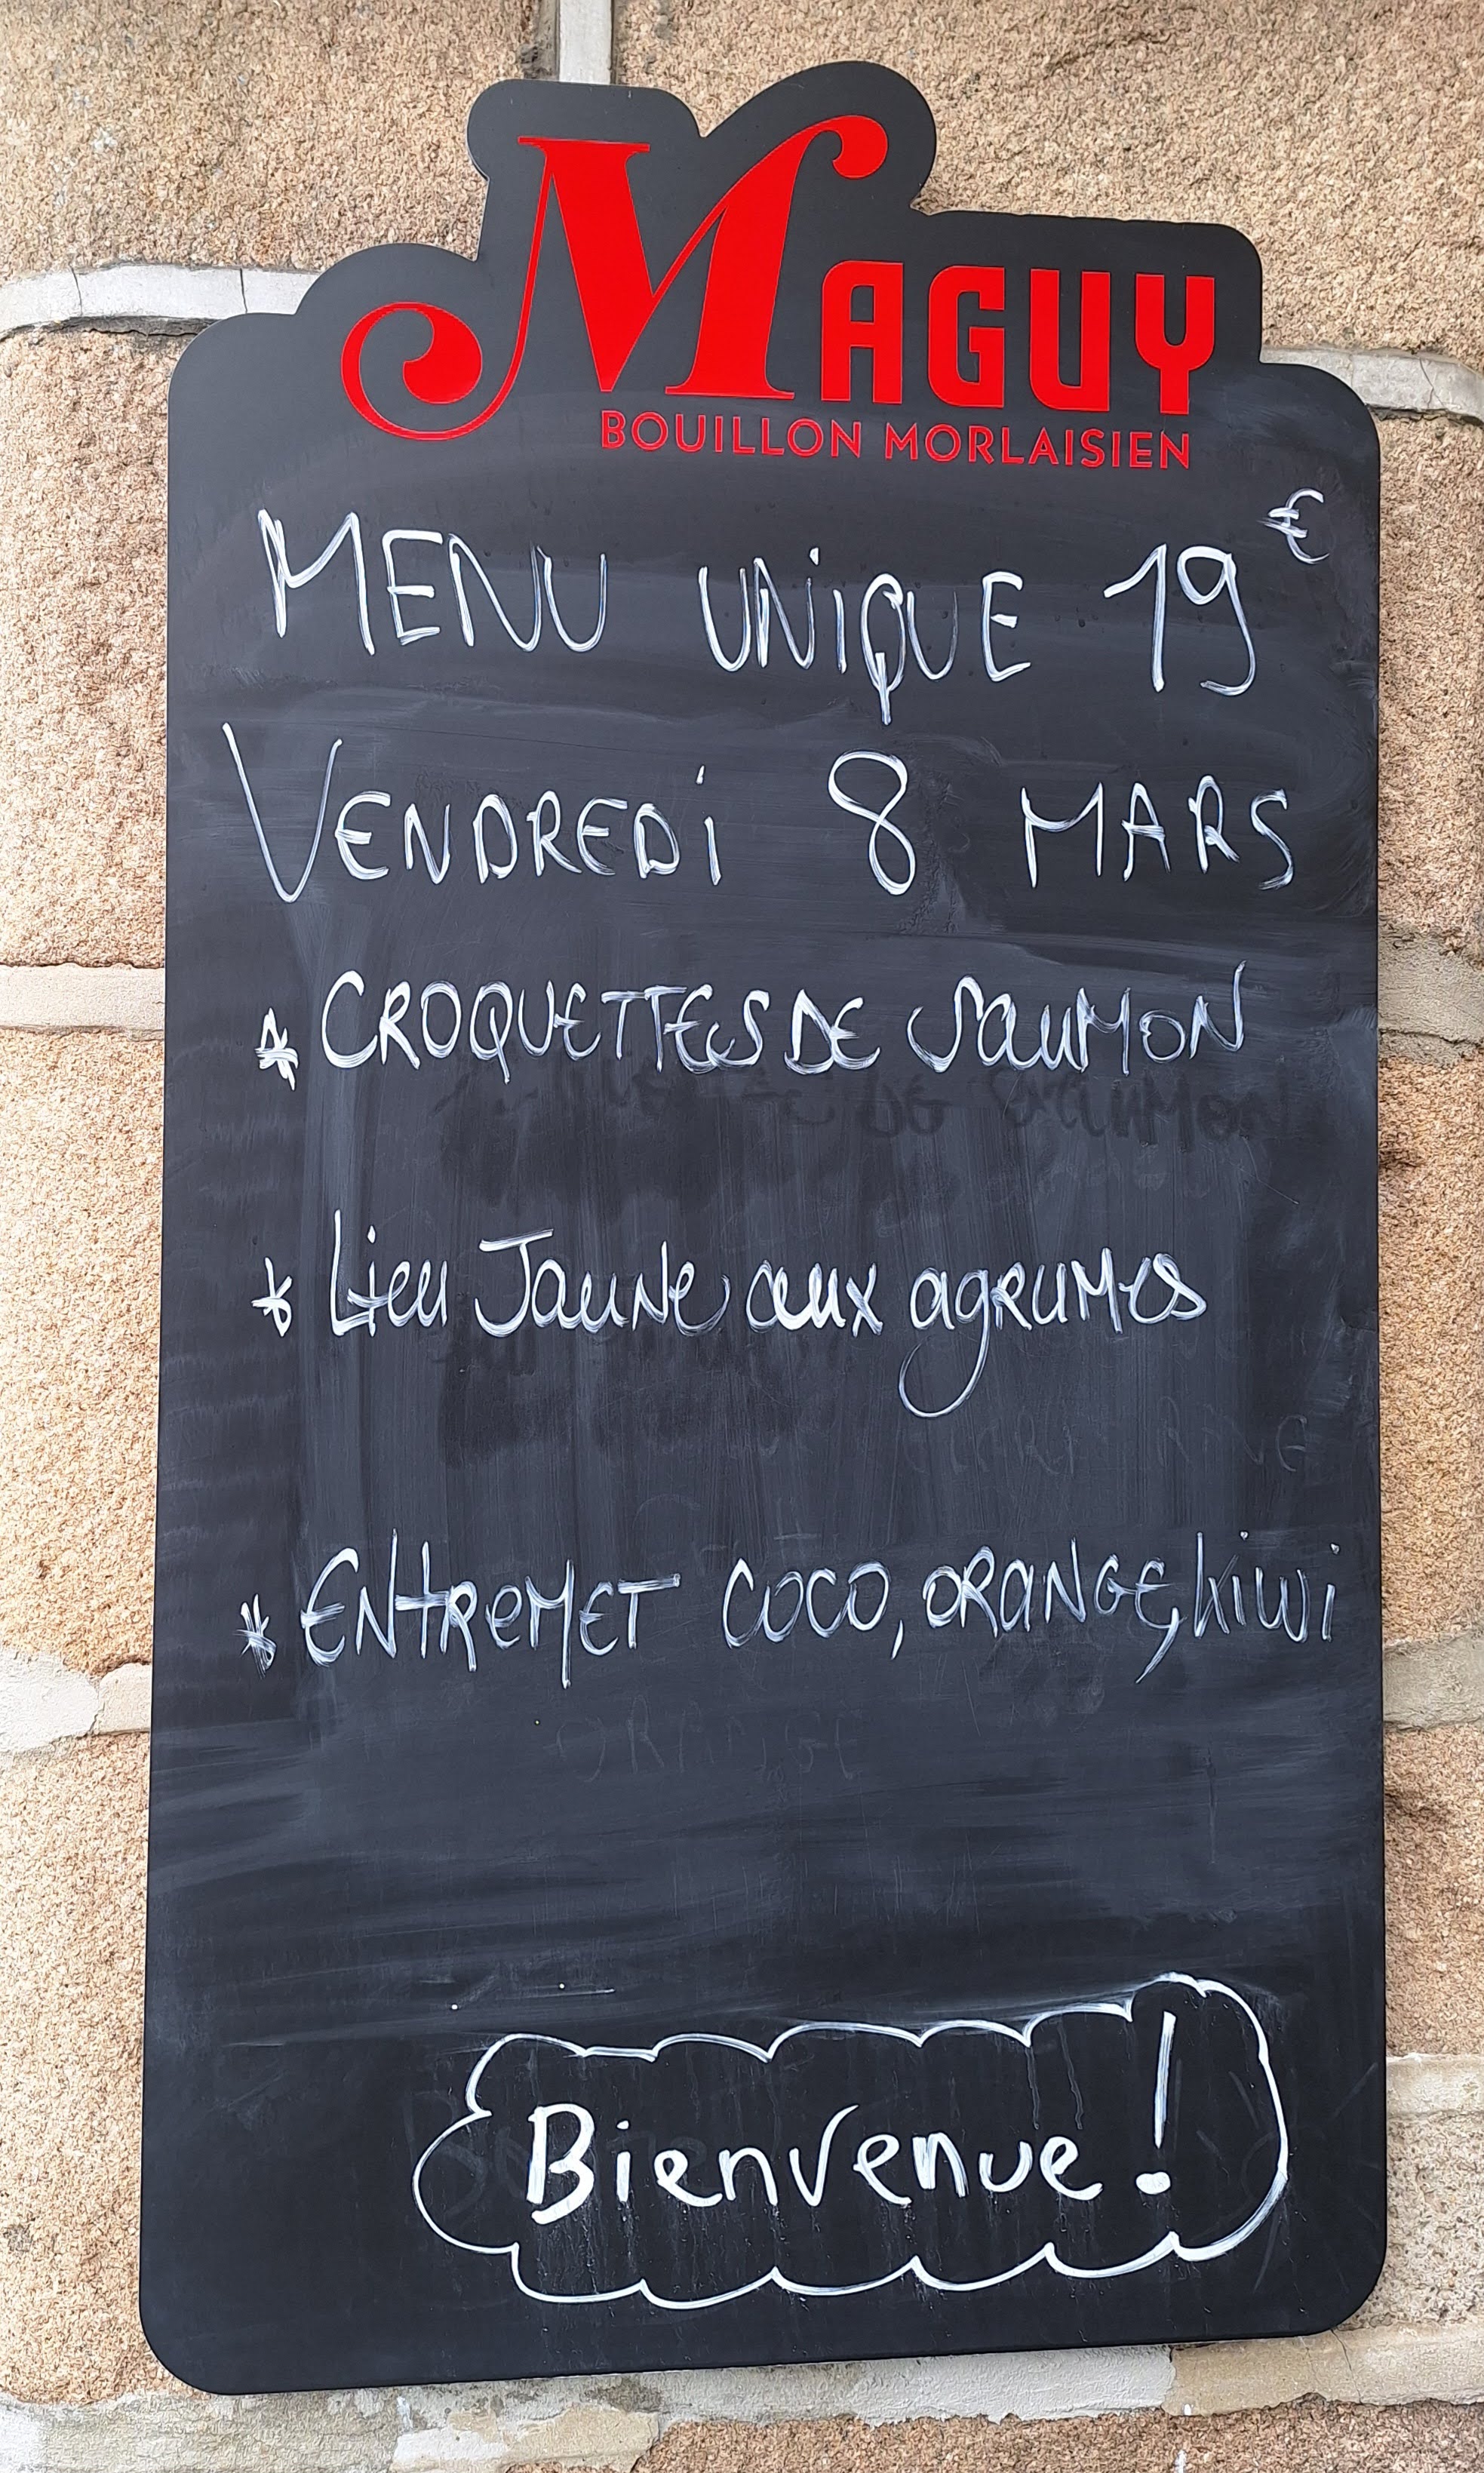 MAGUY
BOUILLON MORLAISIEN
MENU UNIQUE 19€
VENDREDI 8 MARS
* CROQUETTES DE SAUMON
* Lieu Jaune aux agrumes
* ENTREMET COCO, ORANGE, kiwi
Bienvenue !